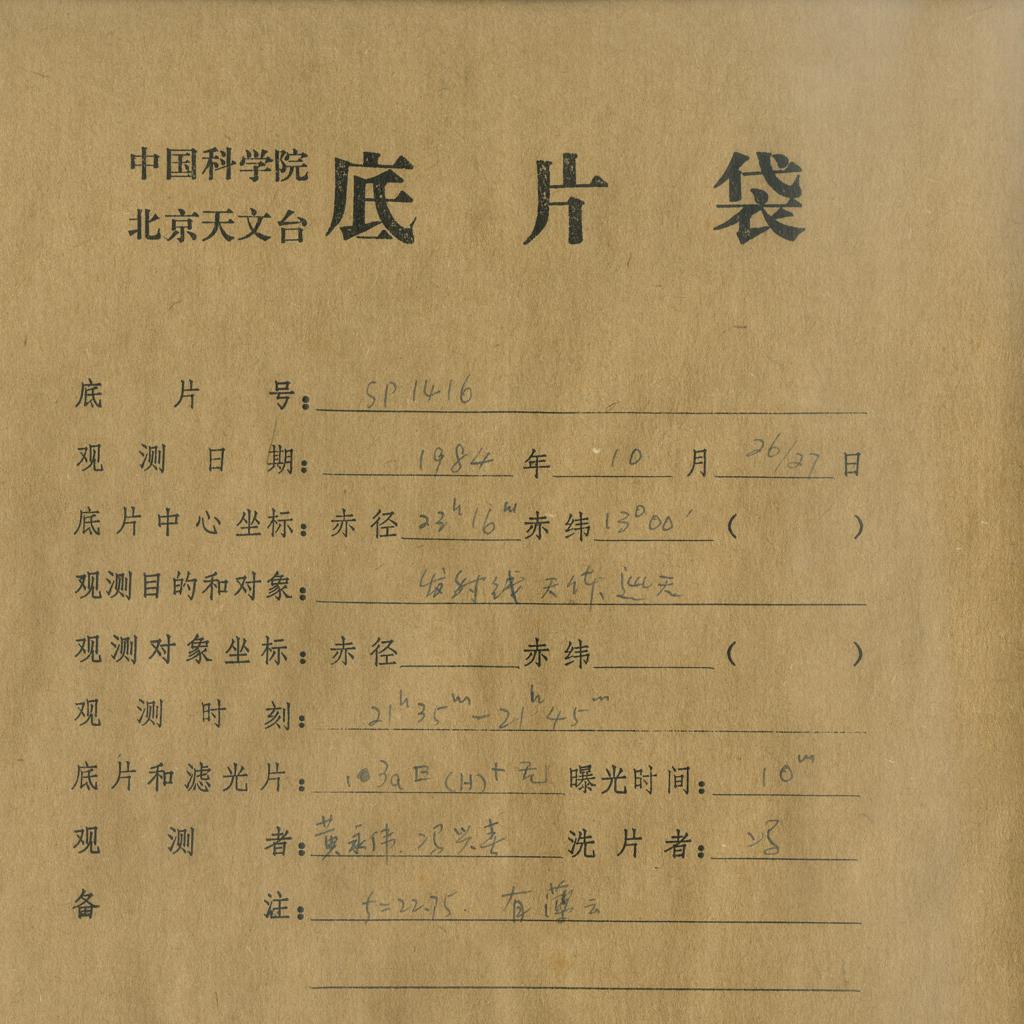 中国科学院
北京天文台 底片袋
底片号: SP1416
观测日期: 1984 年 10 月 26/27 日
底片中心坐标: 赤径 23h16m 赤纬 13°00′ ( )
观测目的和对象: 发射线天体巡天
观测对象坐标: 赤径 赤纬 ( )
观测时刻: 21h35m-21h45m
底片和滤光片: 103aE (H)+无 曝光时间: 10m
观测者: 黄永伟. 冯兴春 洗片者: 冯
备注: f=22.75. 有薄云